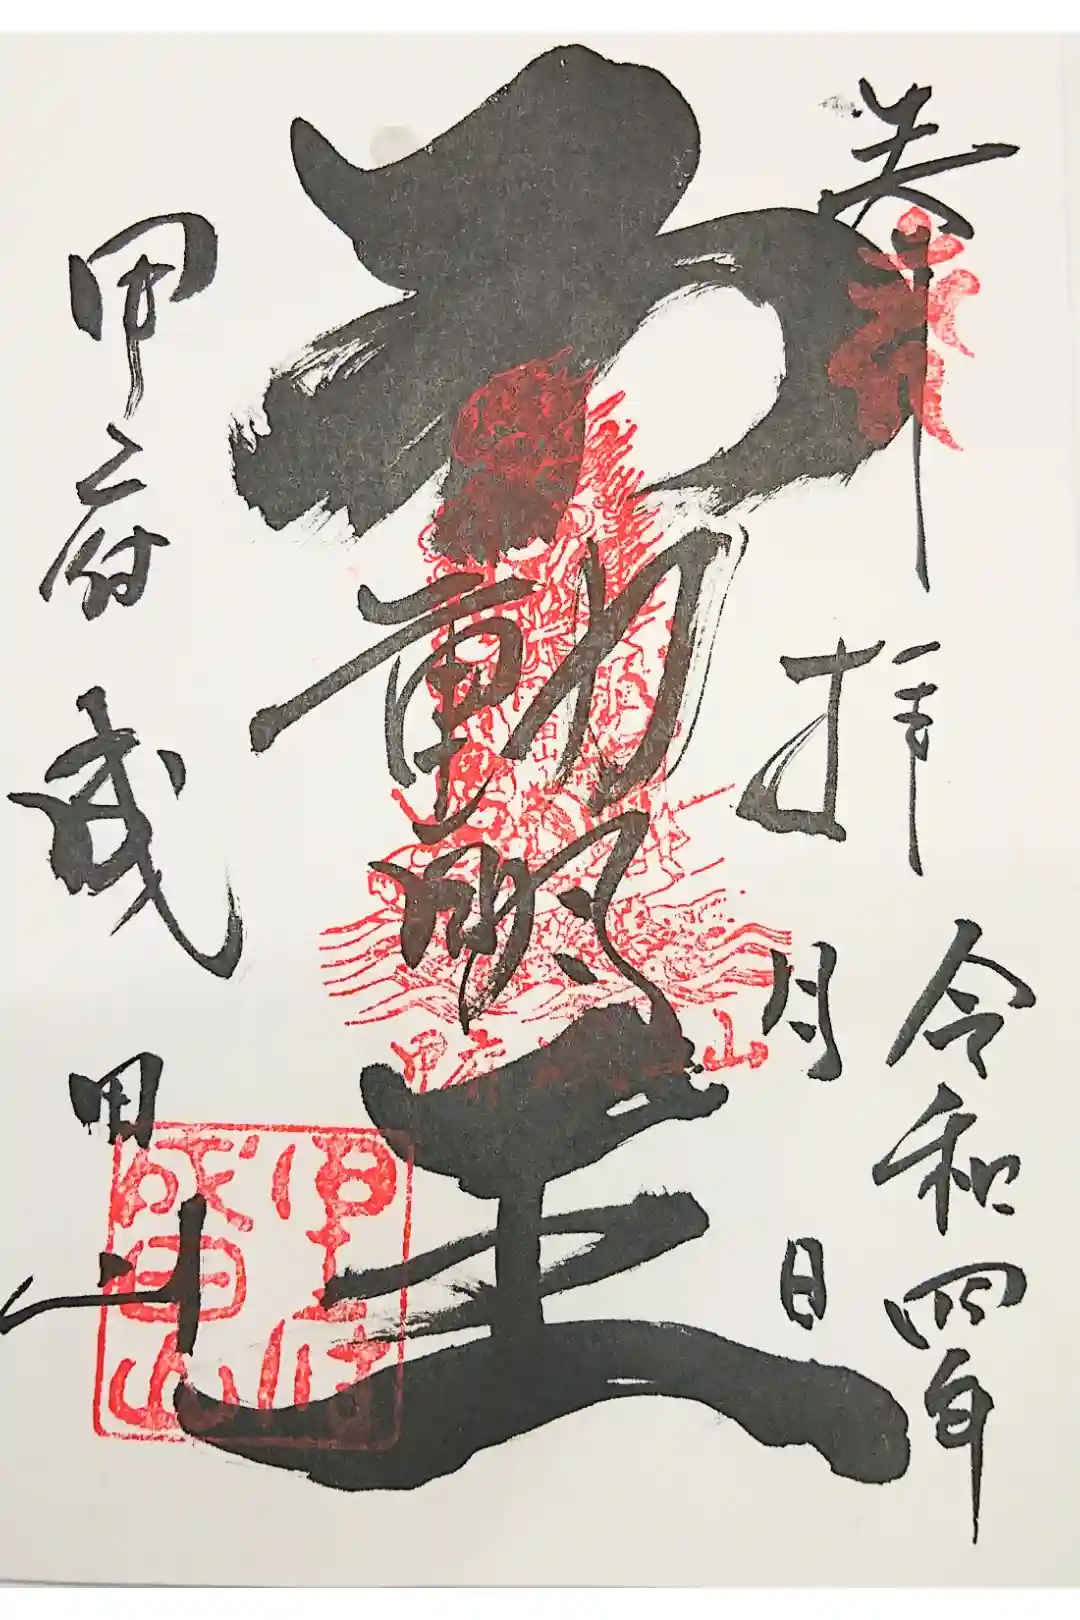 奉拝
令和四年
月 日
不動明王
甲府 成田山
甲府
成田山